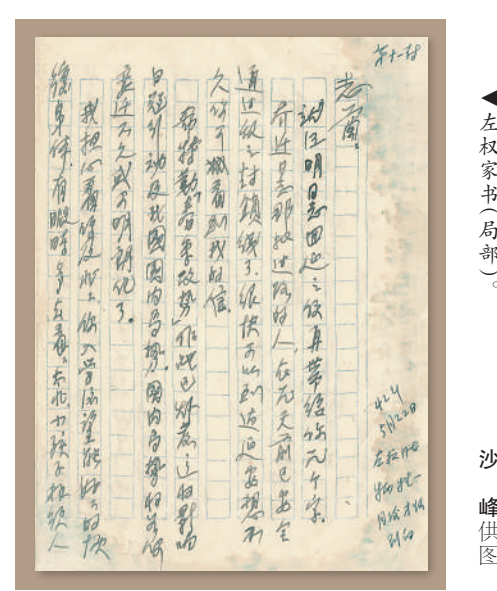 第十一封
志兰：
就江明同志回延之便再带给你几个字。
乔迁同志那批过路的人，在几天前已安全
通过敌之封鎖線了，很快可以到达延安，想不
久你可看到我的信。
希特勒“春季攻势”作战已爆发，这将影响
日寇行动及我国国内局势，国内局势将如何
变迁不久或可明朗化了。
我担心着你及北北，你入学后望能好好的恢
復身体，有暇時多去看看，太北小孩子极须人
5月22日
◀左权家书（局部）。
沙 峰供图